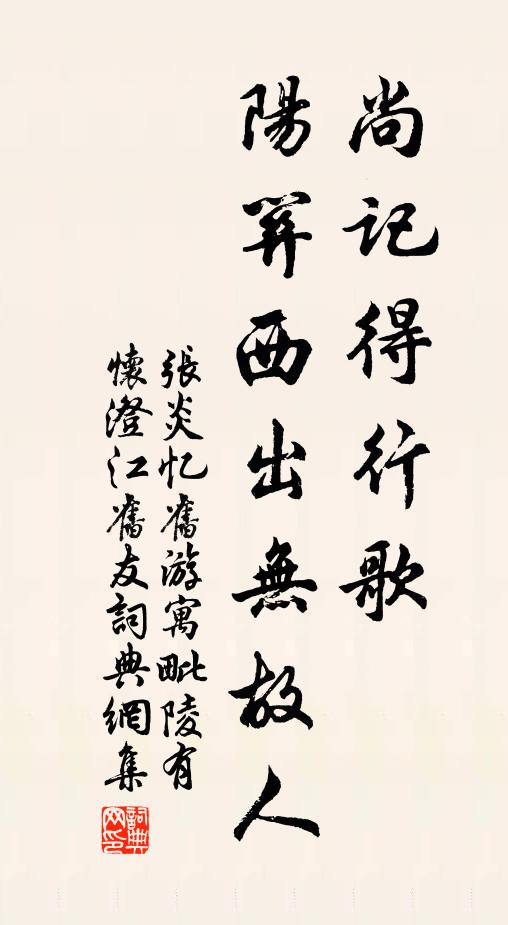 尚記得行歌
陽關西出無故人
張炎忆舊游寓毗陵有
懷澄江舊友詞典網集
詞典
网印